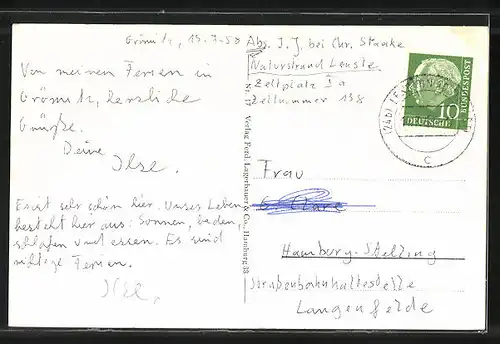 Grömitz, 13.7.58
Abs. I. J. bei Chr. Staake
Naturstrand Lenste
Zeltplatz I a
Zeltnummer 138
Von meinen Ferien in
Grömitz, herzliche
Grüße.
Deine
Ilse.
Es ist sehr schön hier. Unser Leben
besteht hier aus: Sonnen, baden,
schlafen und essen. Es sind
richtige Ferien.
Ilse.
Nr. 17 Verlag Ferd. Lagerbauer & Co., Hamburg 23
Frau
Hamburg-Stelling
Straßenbahnhaltestelle
Langenfelde
10
DEUTSCHE
BUNDESPOST
(24b)
C